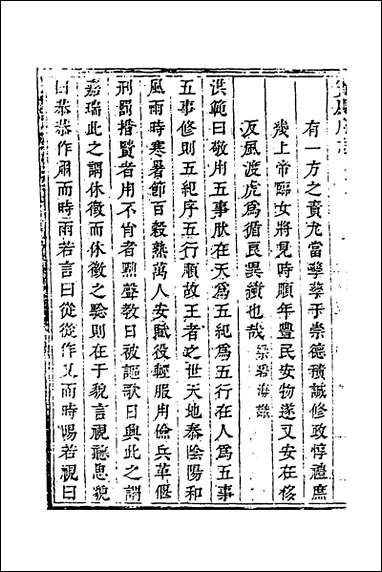 有一方之責尤當孳孳于崇德積誠修政惇禮庶
幾上帝臨女將見時順年豐民安物遂又安在侈
反風渡虎爲循良異徵也哉
洪範曰敬用五事厥在天爲五紀爲五行在人爲五事
五事修則五紀序五行順故王者之世天地泰陰陽和
風雨時寒暑節百穀熟萬人安賦役輕服用儉兵革偃
刑罰措賢者用不肖者黜聲敎日被謳歌日興此之謂
嘉瑞此之謂休徵而休徵之驗則在于貌言視聽思貌
曰恭恭作肅而時雨若言曰從從作乂而時暘若視曰